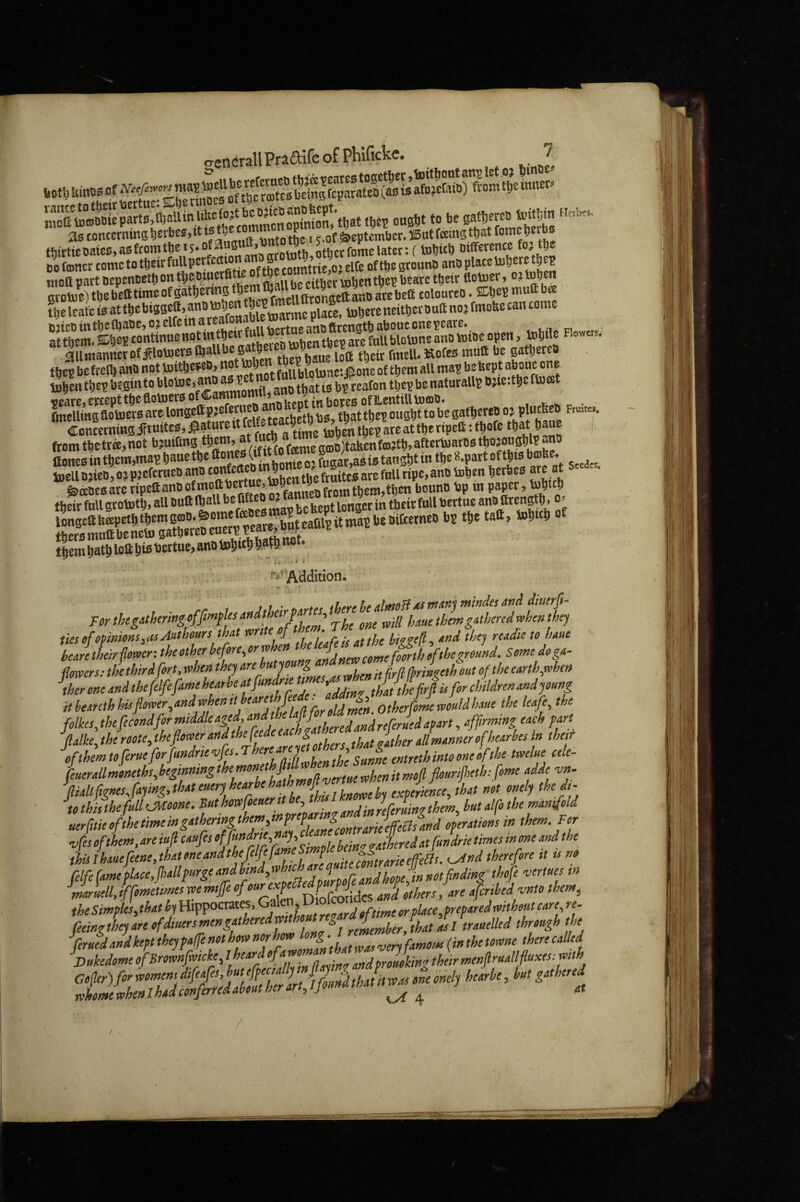 generall Practise of Phisicke. 7
both kindes of Neesewort may well be reserued thrée yeares together, without any let or hinde-
rance to their vertue: The rindes of the rootes being separated (as is aforesaid) from the inner
most wooddie parts, shall in like sort be dried and kept.
As concerning herbes, it is the common opinion, that they ought to be gathered within Herbes.
thirtie daies, as from the 15. of August, vnto the 15. of September. But séeing that some herbs
do sooner come to their full perfection and growth, other some later: (which difference for the
most part dependeth on the diuersitie of the countrie, or else of the ground and place where they
growe) the best time of gathering them shall be either when they beare their flower, or when
the leafe is at the biggest, and when they smell strongest and are best coloured. They must bée
dried in the shade, or else in a reasonable warme place, where neither dust nor smoke can come
at them. They continue not in their full vertue and strength aboue one yeare.
All manner of Flowers shall be gathered when they are full blowne and wide open, while Flowers.
they be fresh and not withered, not when they haue lost their smell. Roses must be gathered
when they begin to blowe, and as yet not full blowne: None of them all may be kept aboue one
yeare, except the flowers of Cammomil, and that is by reason they be naturally drie: the sweet
smelling flowers are longest preserued and kept in bores of Lentill wood.
Concerning Fruites, Nature it selfe teacheth vs, that they ought to be gathered or plucked Fruites.
from the trée, not brusing them, at such a time when they are at the ripest: those that haue
stones in them, may haue the stones (if it so séeme good) taken foorth, afterwards thoroughly and
well dried, or preserued and confected in honie or sugar, as is taught in the 8. part of this booke.
Séedes are ripest and of most vertue, when the fruites are full ripe, and when herbes are at Seedes.
their full growth, all dust shall be sifted or fanned from them, then bound vp in paper, which
longest kéepeth them good. Some séedes may be kept longer in their full vertue and strength, o-
thers must be new gathered euery yeare, but easily it may be discerned by the tast, which of
them hath lost his vertue, and which hath not.
Addition.
For the gathering of simples and their partes, there be almost as many mindes and diuersi-
ties of opinions, as Authours that write of them. The one will haue them gathered when they
beare their flower: the other before, or when the leafe is at the biggest, and they readie to haue
flowers: the third sort, when they are but young and new come foorth of the ground. Some do ga-
ther one and the selfe same hearbe at sundrie times, as when it first springeth out of the earth, when
it beareth his flower, and when it beareth seede: adding, that the first is for children and young
folkes, the second for middle aged, and the last for old men. Other some would haue the leafe, the
stalke, the roote, the flower and the seede each gathered and reserued apart, affirming each part
of them to serue for sundrie vses. There are yet others, that gather all manner of hearbes in their
seuerall moneths, beginning the moneth still when the Sunne entreth into one of the twelue cele-
stiall signes, saying, that euery hearbe hath most vertue when it most flourisheth: some adde vn-
to this the full Moone. But howsoeuer it be, this I knowe by experience, that not onely the di-
uersitie of the time in gathering them, in preparing and in reseruing them, but also the manifold
vses of them, are iust causes of sundrie, nay, cleane contrarie effects and operations in them. For
this I haue seene, that one and the selfe same Simple being gathered at sundrie times in one and the
selfe same place, shall purge and bind, which are quite contrarie effects. And therefore it is no
maruell, if sometimes we misse of our expected purpose and hope, in not finding those vertues in
the Simples, that by Hippocrates, Galen, Dioscorides and others, are ascribed vnto them,
seeing they are of diuers men gathered without regard of time or place, prepared without care, re-
serued and kept they passe not how nor how long. I remember, that as I trauelled through the
Dukedome of Brownswicke, I heard of a woman that was very famous (in the towne there called
Gosler) for womens diseases, but especially in staying and prouoking their menstruall fluxes: with
whome when I had conferred about her art, I found that it was one onely hearbe, but gathered
A 4 at